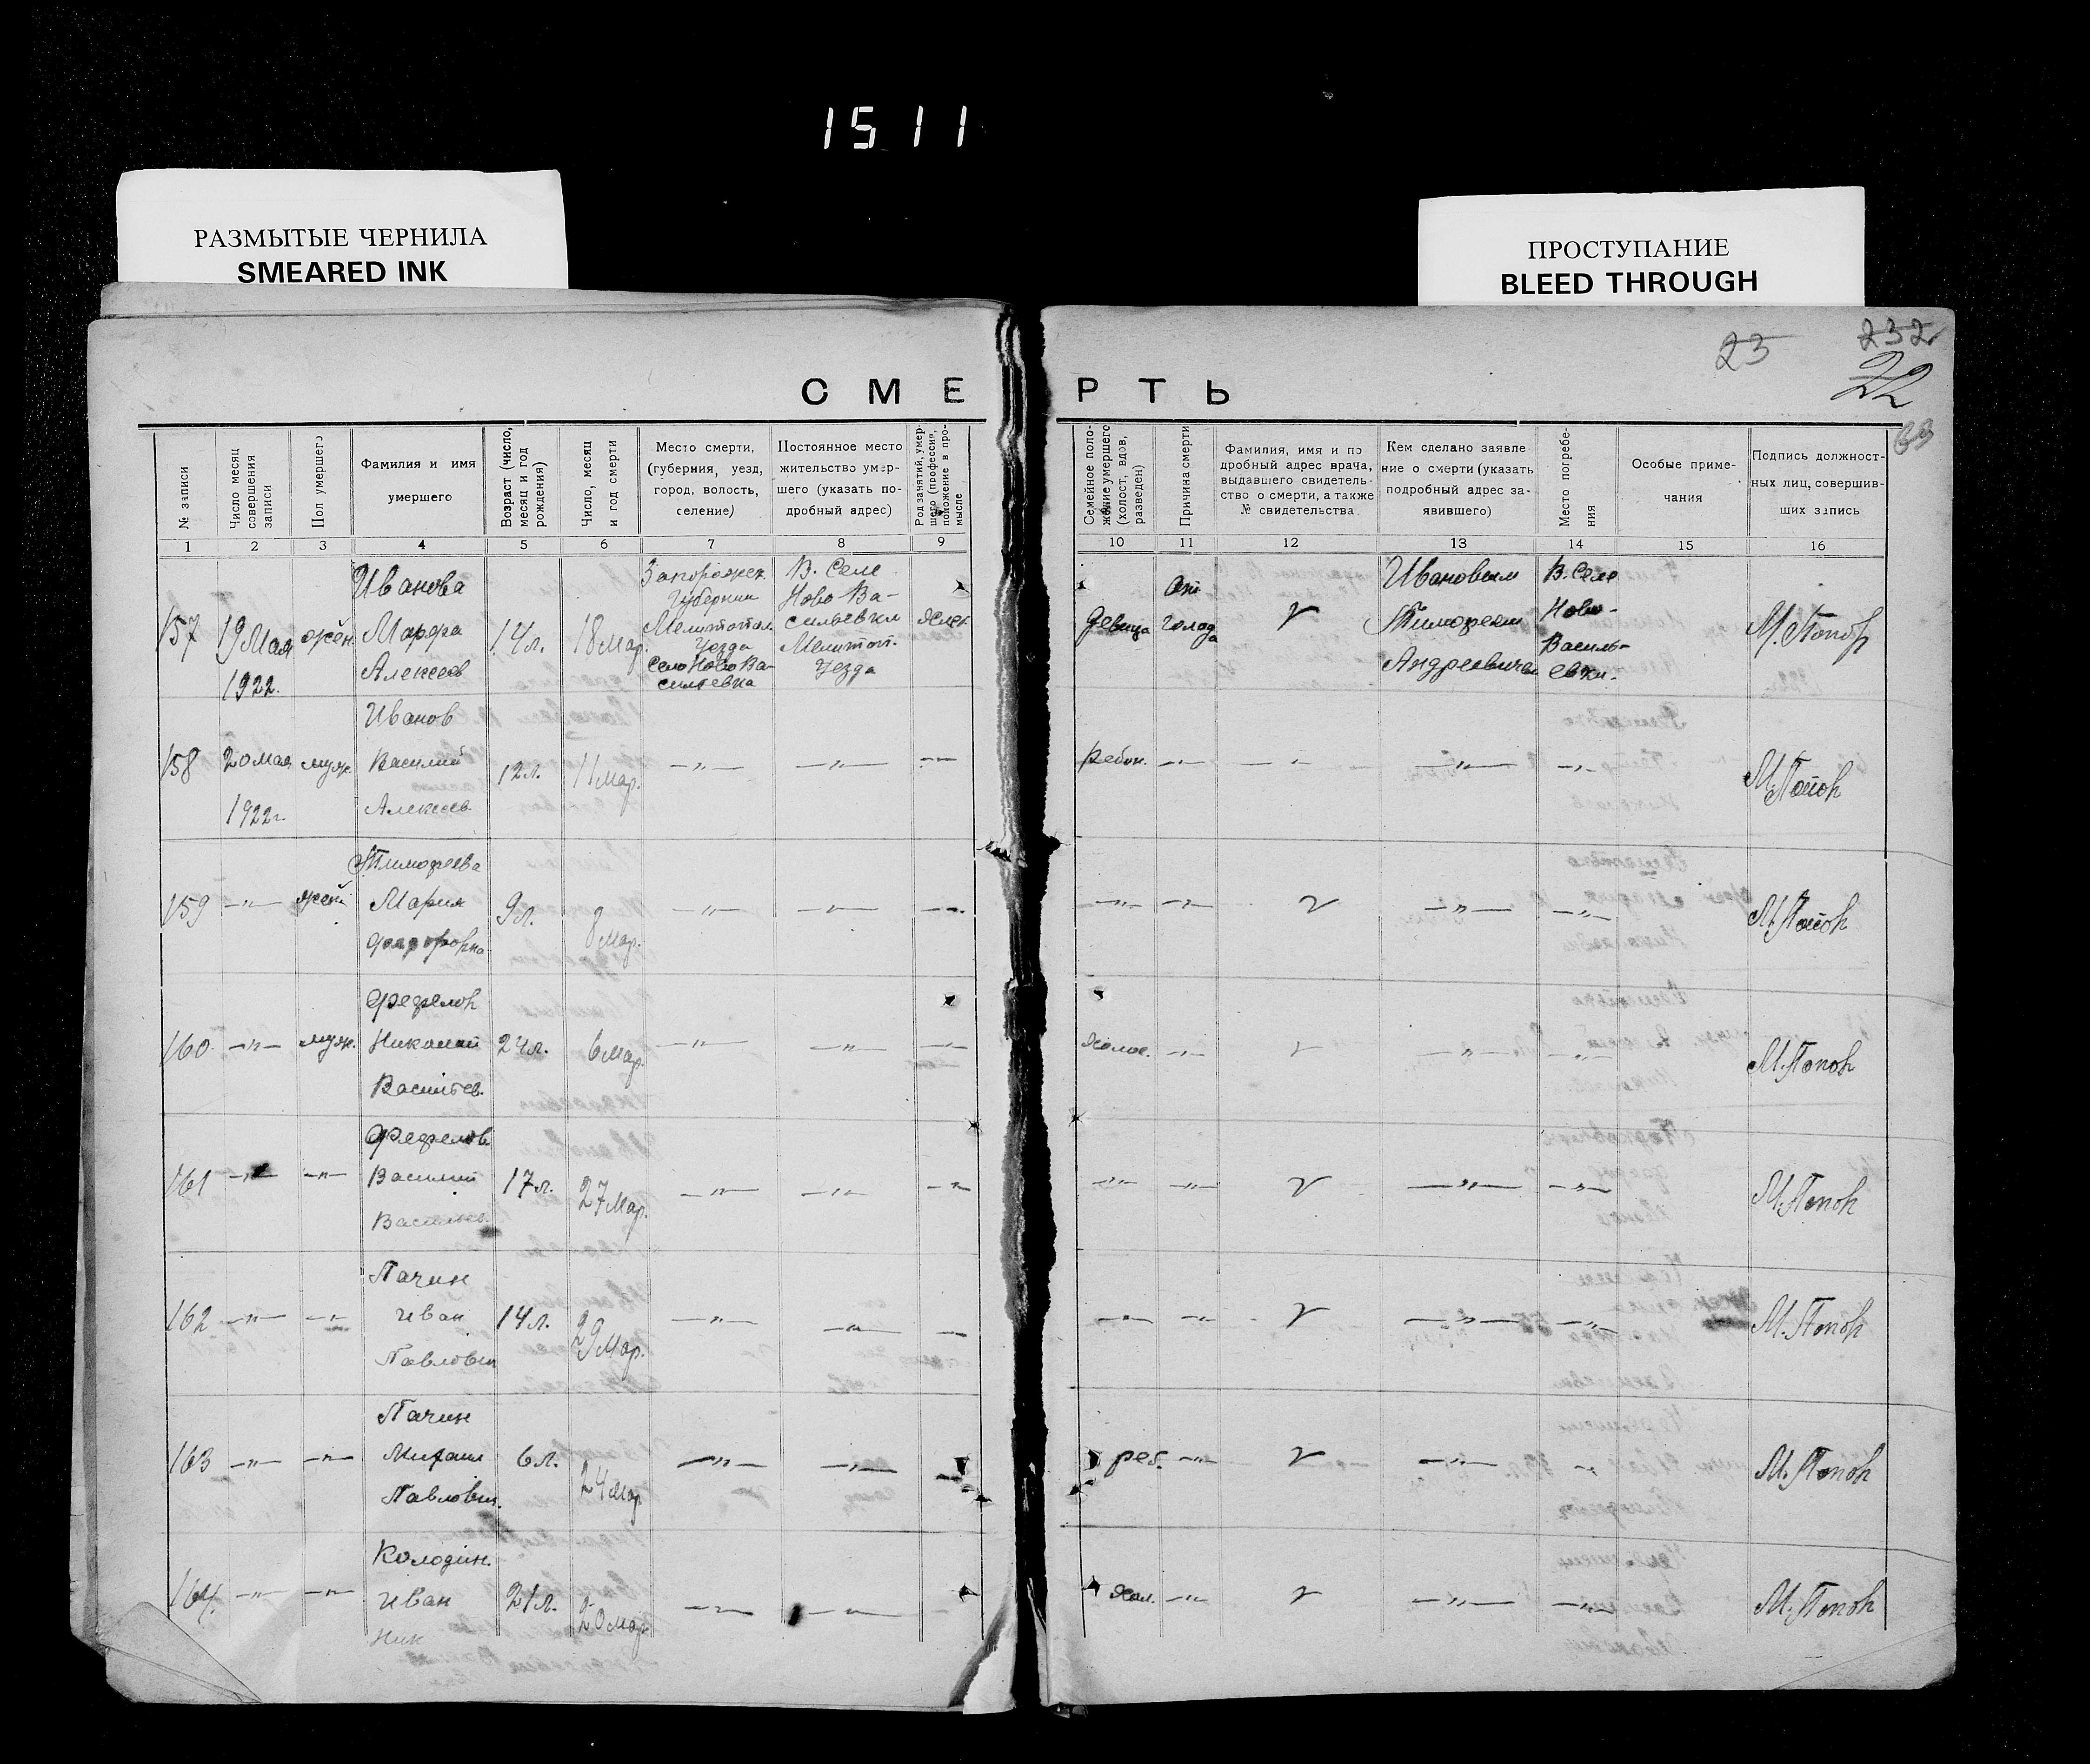 1511
РАЗМЫТЫЕ ЧЕРНИЛА
SMEARED INK
ПРОСТУПАНИЕ
BLEED THROUGH
23
232
22
63
СМЕРТЬ
№ записи
Число месяц совершения записи
Пол умершего
Фамилия и имя умершего
Возраст (число, месяц и год рождения)
Число, месяц и год смерти
Место смерти, (губерния, уезд, город, волость, селение)
Постоянное место жительство умершего (указать подробный адрес)
Род занятий, умершего (профессия, положение в промысле
Семейное положение умершего (холост, вдов, разведен)
Причина смерти
Фамилия, имя и подробный адрес врача, выдавшего свидетельство о смерти, а также № свидетельства
Кем сделано заявление о смерти (указать подробный адрес заявившего)
Место погребения
Особые примечания
Подпись должностных лиц, совершивших запись
1 2 3 4 5 6 7 8 9 10 11 12 13 14 15 16
157
19 Мая
1922.
жен.
Иванова
Марфа
Алексеев
14 л.
18 Мар.
Запорожск.
Губернии
Мелитопол.
Уезда
Село Ново Ва-
сильевка
В. Селе
Ново Ва-
сильевки
Мелитоп.
Уезда
девица
От
голода
Ивановым
Тимофеем
Андреевичем
В. Село
Ново-
Василь-
евки.
М. Попов
158
20 мая
1922 г.
муж
Иванов
Василий
Алексеев
12 л.
11 Мар.
—"— —"— —"—
ребен.
—"— —"— —"— —"—
М. Попов
159 —"— жен
Тимофеева
Мария
9 л. 8 Мар. —"— —"— —"—
—"— —"— —"— —"—
М. Попов
160 —"— муж.
Николай
Васильев.
24 л. 6 Мар. —"— —"— —"—
холос. —"— —"— —"—
М. Попов
161 —"— —"—
Василий
Васильев.
17 л. 27 Мар. —"— —"— —"—
—"— —"— —"— —"—
М. Попов
162 —"— —"—
Пачин
Иван
Павлович
14 л. 29 Мар. —"— —"— —"—
—"— —"— —"— —"—
М. Попов
163 —"— —"—
Пачин
Михаил
Павлович.
6 л. 24 Мар —"— —"— —"—
реб. —"— —"— —"—
М. Попов
164. —"— —"—
Колодин.
Иван
Ник
21 л. 20 Мар —"— —"—
Хол. —"— —"— —"—
М. Попов